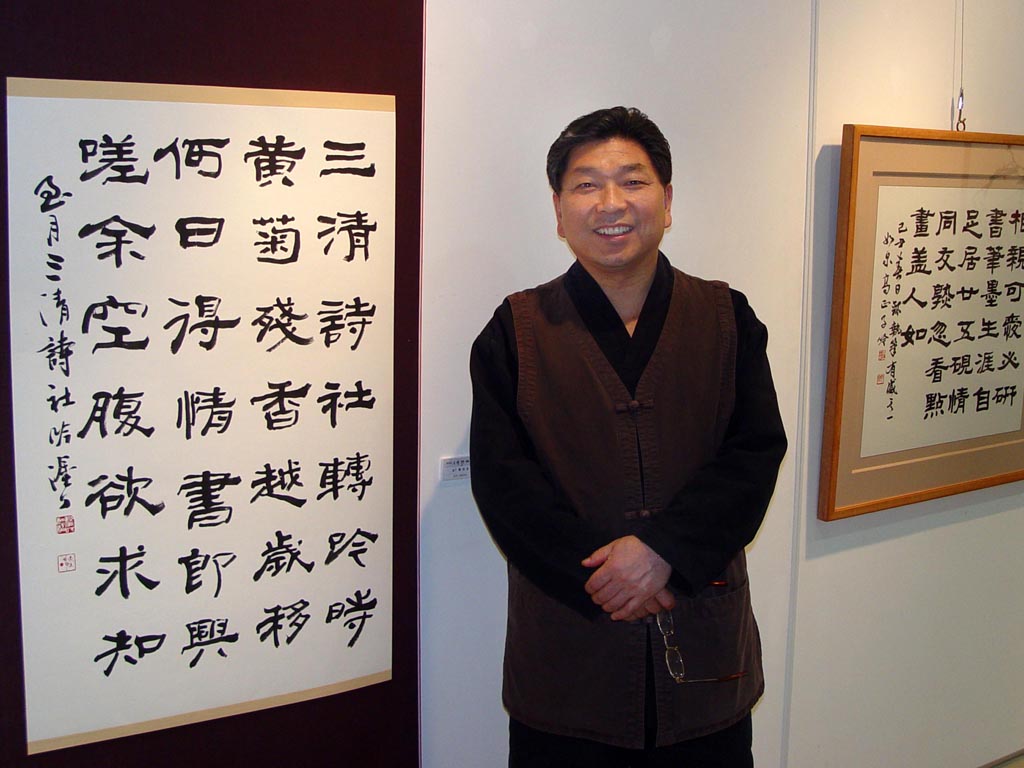 三清詩社轉吟時
黃菊殘香越歲移
何日得情書即興
嗟余空腹欲求知
三清詩社
相親可愛必硏
書筆墨生涯自
足居廿五硯情
同文熟忽看點
畫盖人如
己丑春日